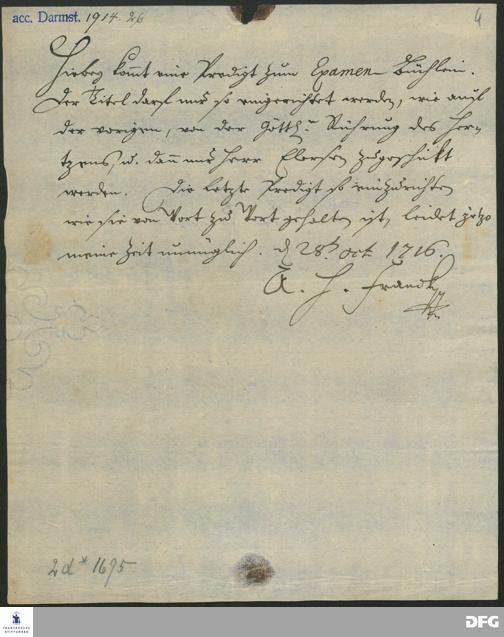 acc. Darmst. 1914. 26
4
Hiebey kömt eine Predigt zum Examen-Büchlein.
Der Titel darf nur so eingerichtet werden, wie auf
der vorigen, von der Göttl. Rührung des Her-
tzens, u. dann nur Herr Elersen zugeschickt
werden. Die letzte Predigt so einzurichten
wie sie von Wort zu Wort gehalten ist, leidet jetzo
meine Zeit unmüglich. d 28. Oct. 1716.
A. H. Franck
2d* 1695
FRANCKESCHE
STIFTUNGEN
DFG